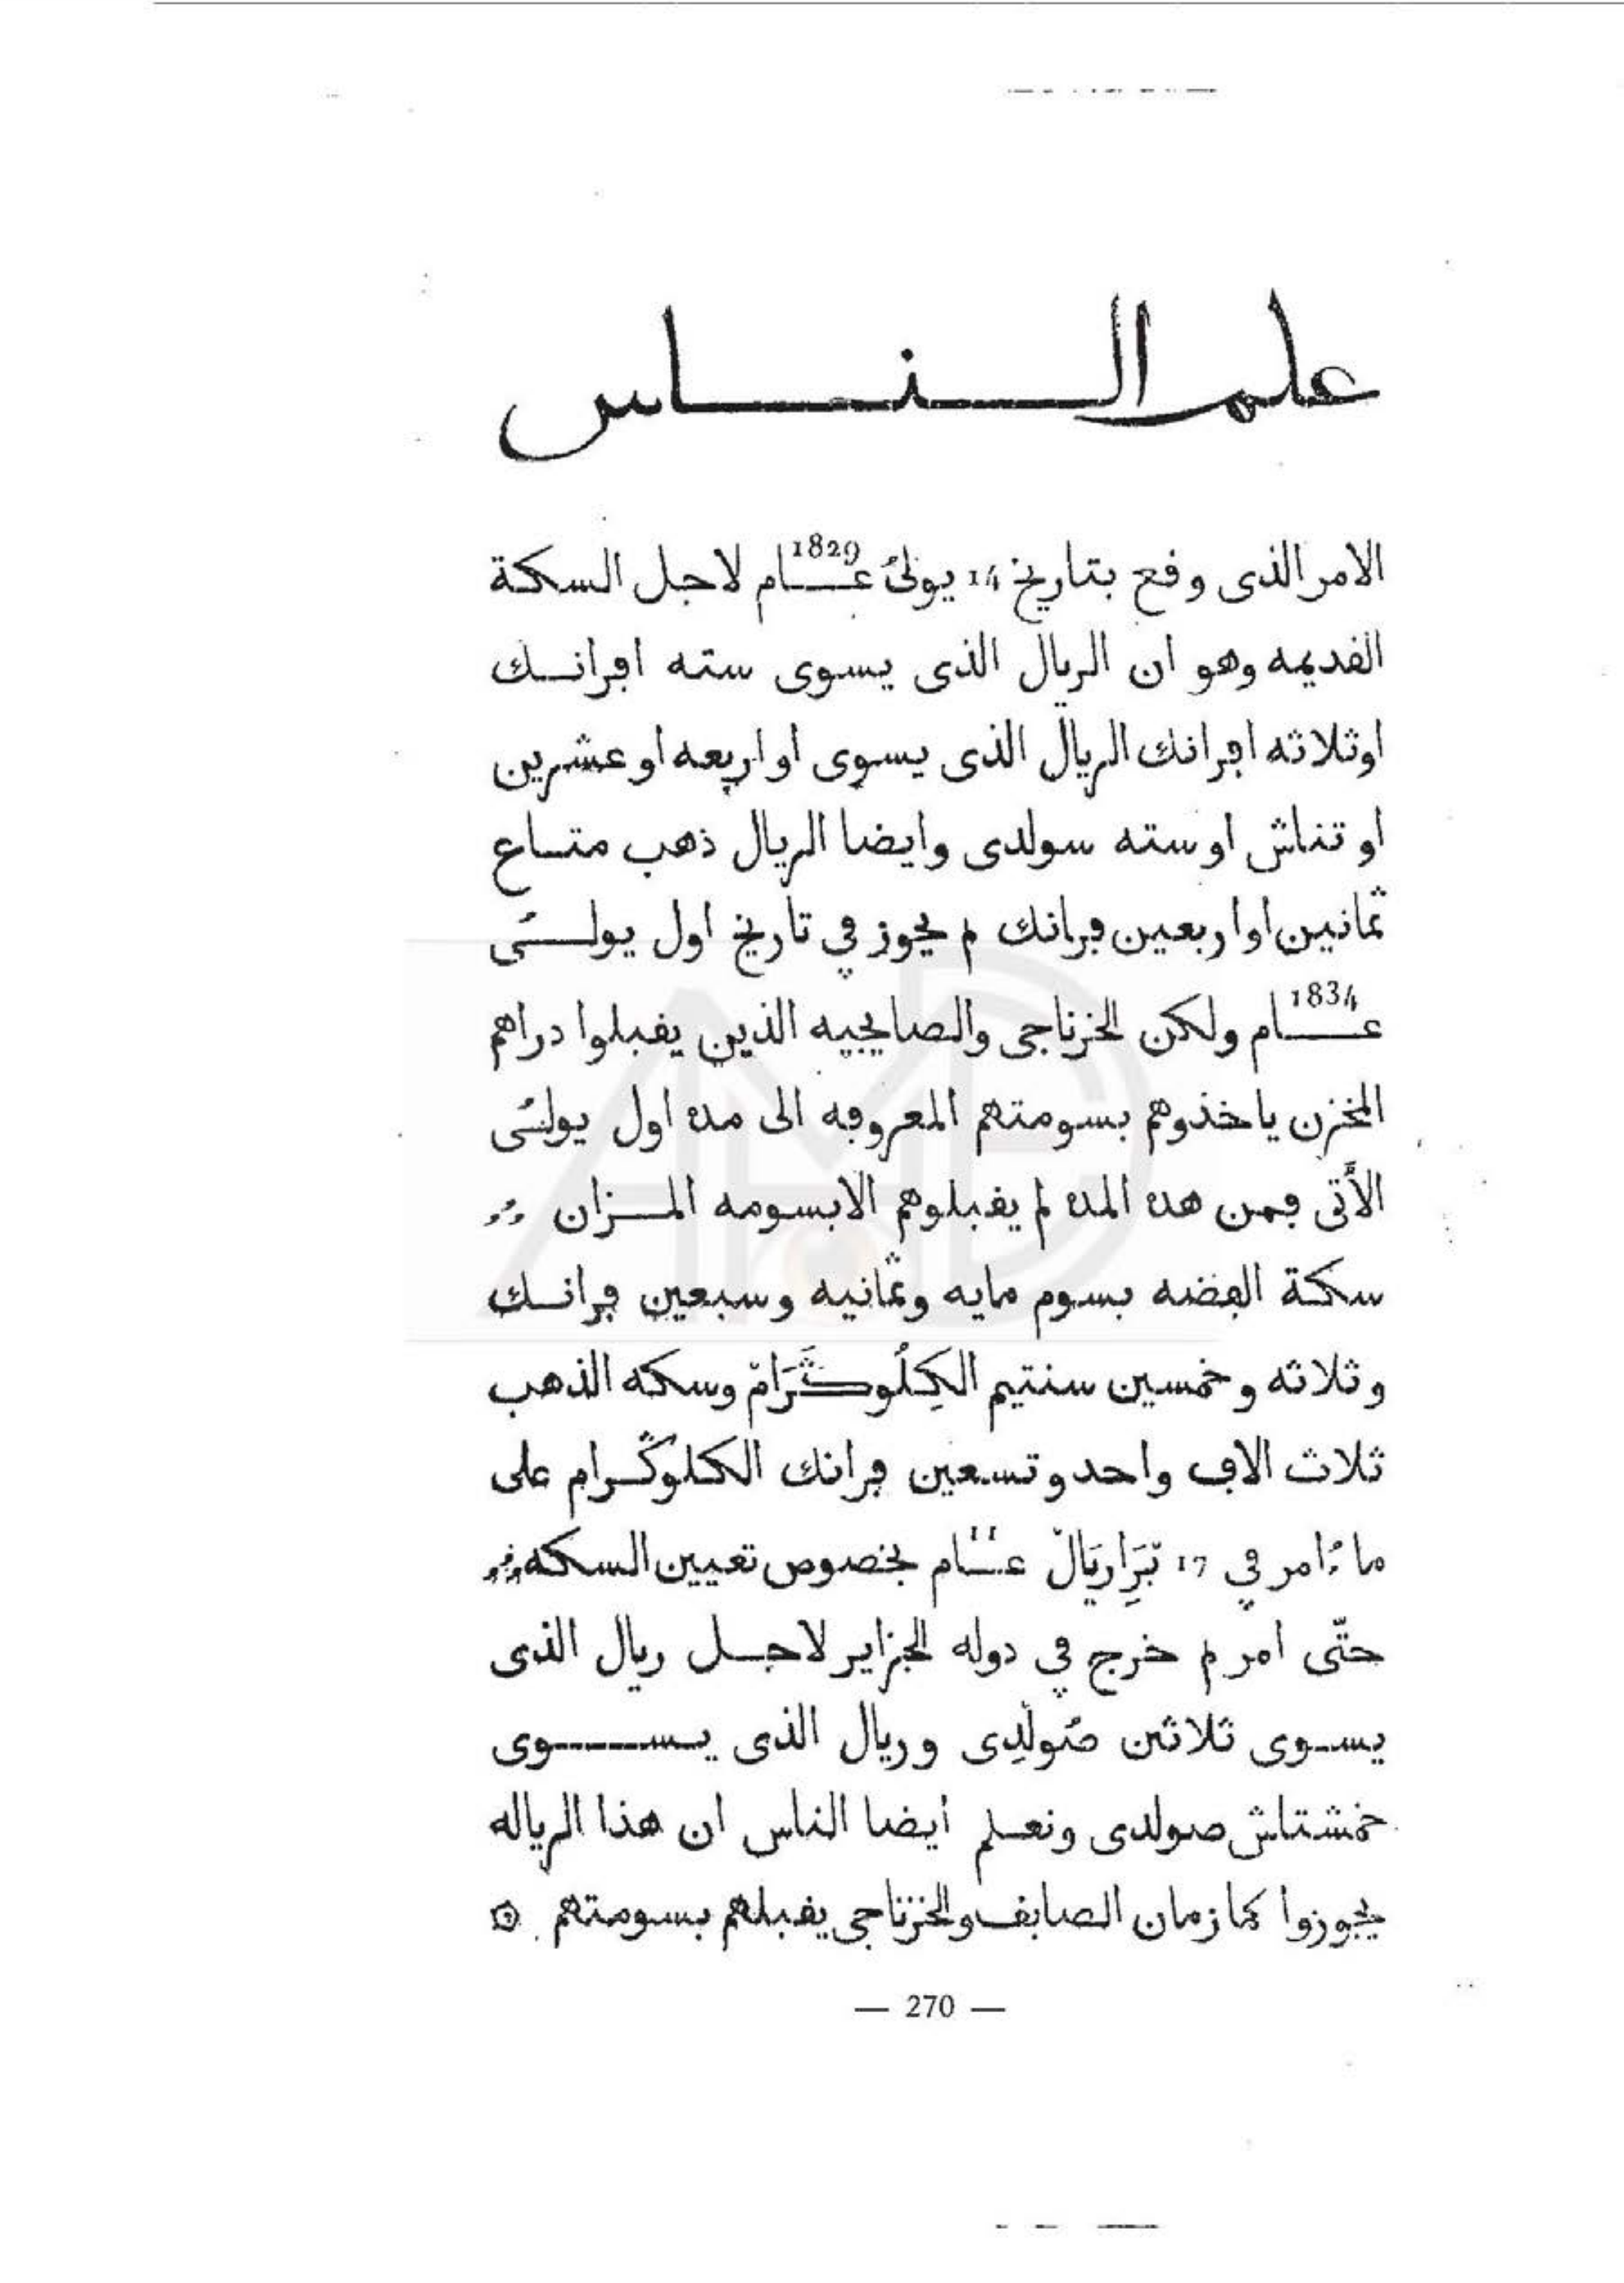 علم الـــنـــاس
الامر الذى وفع بتاريخ 14 يولئ عــام 1829 لاجل السكة
الفديمه وهو ان الريال الذى يسوى سته افرانــك
اوثلاثه افرانك الريال الذى يسوى او اربعه او عشرين
او تناش او سته سولدى وايضا الريال ذهب متــاع
ثمانين او اربعين فرانك لم يجوز في تاريخ اول يولــئى
عــــام 1834 ولكن الخزناجى والصايجيه الذين يفبلوا دراهم
المخزن ياخذوهم بسومتهم المعروفه الى مدة اول يولئى
الأتى فمن هده المده لم يفبلوهم الابسومه المــزان
سكة الفضه بسوم مايه وثمانيه وسبعين فرانــك
وثلاثه وخمسين سنتيم الكِلُوكَرَامْ وسكه الذهب
ثلاث الاف واحد وتسعين فرانك الكلوكرام على
ما ءامر في 17 بَرَارِيَالْ عــام 11 بخصوص تعيين السكه
حتّى امر لم خرج في دوله الجزاير لاجــل ريال الذى
يســوى ثلاثين صُولْدِى وريال الذى يســـــوى
خمشتاش صولدى ونعلم ايضا الناس ان هذا الرياله
يجوزوا كما زمان الصابف والخزناجى يفبلهم بسومتهم
— 270 —